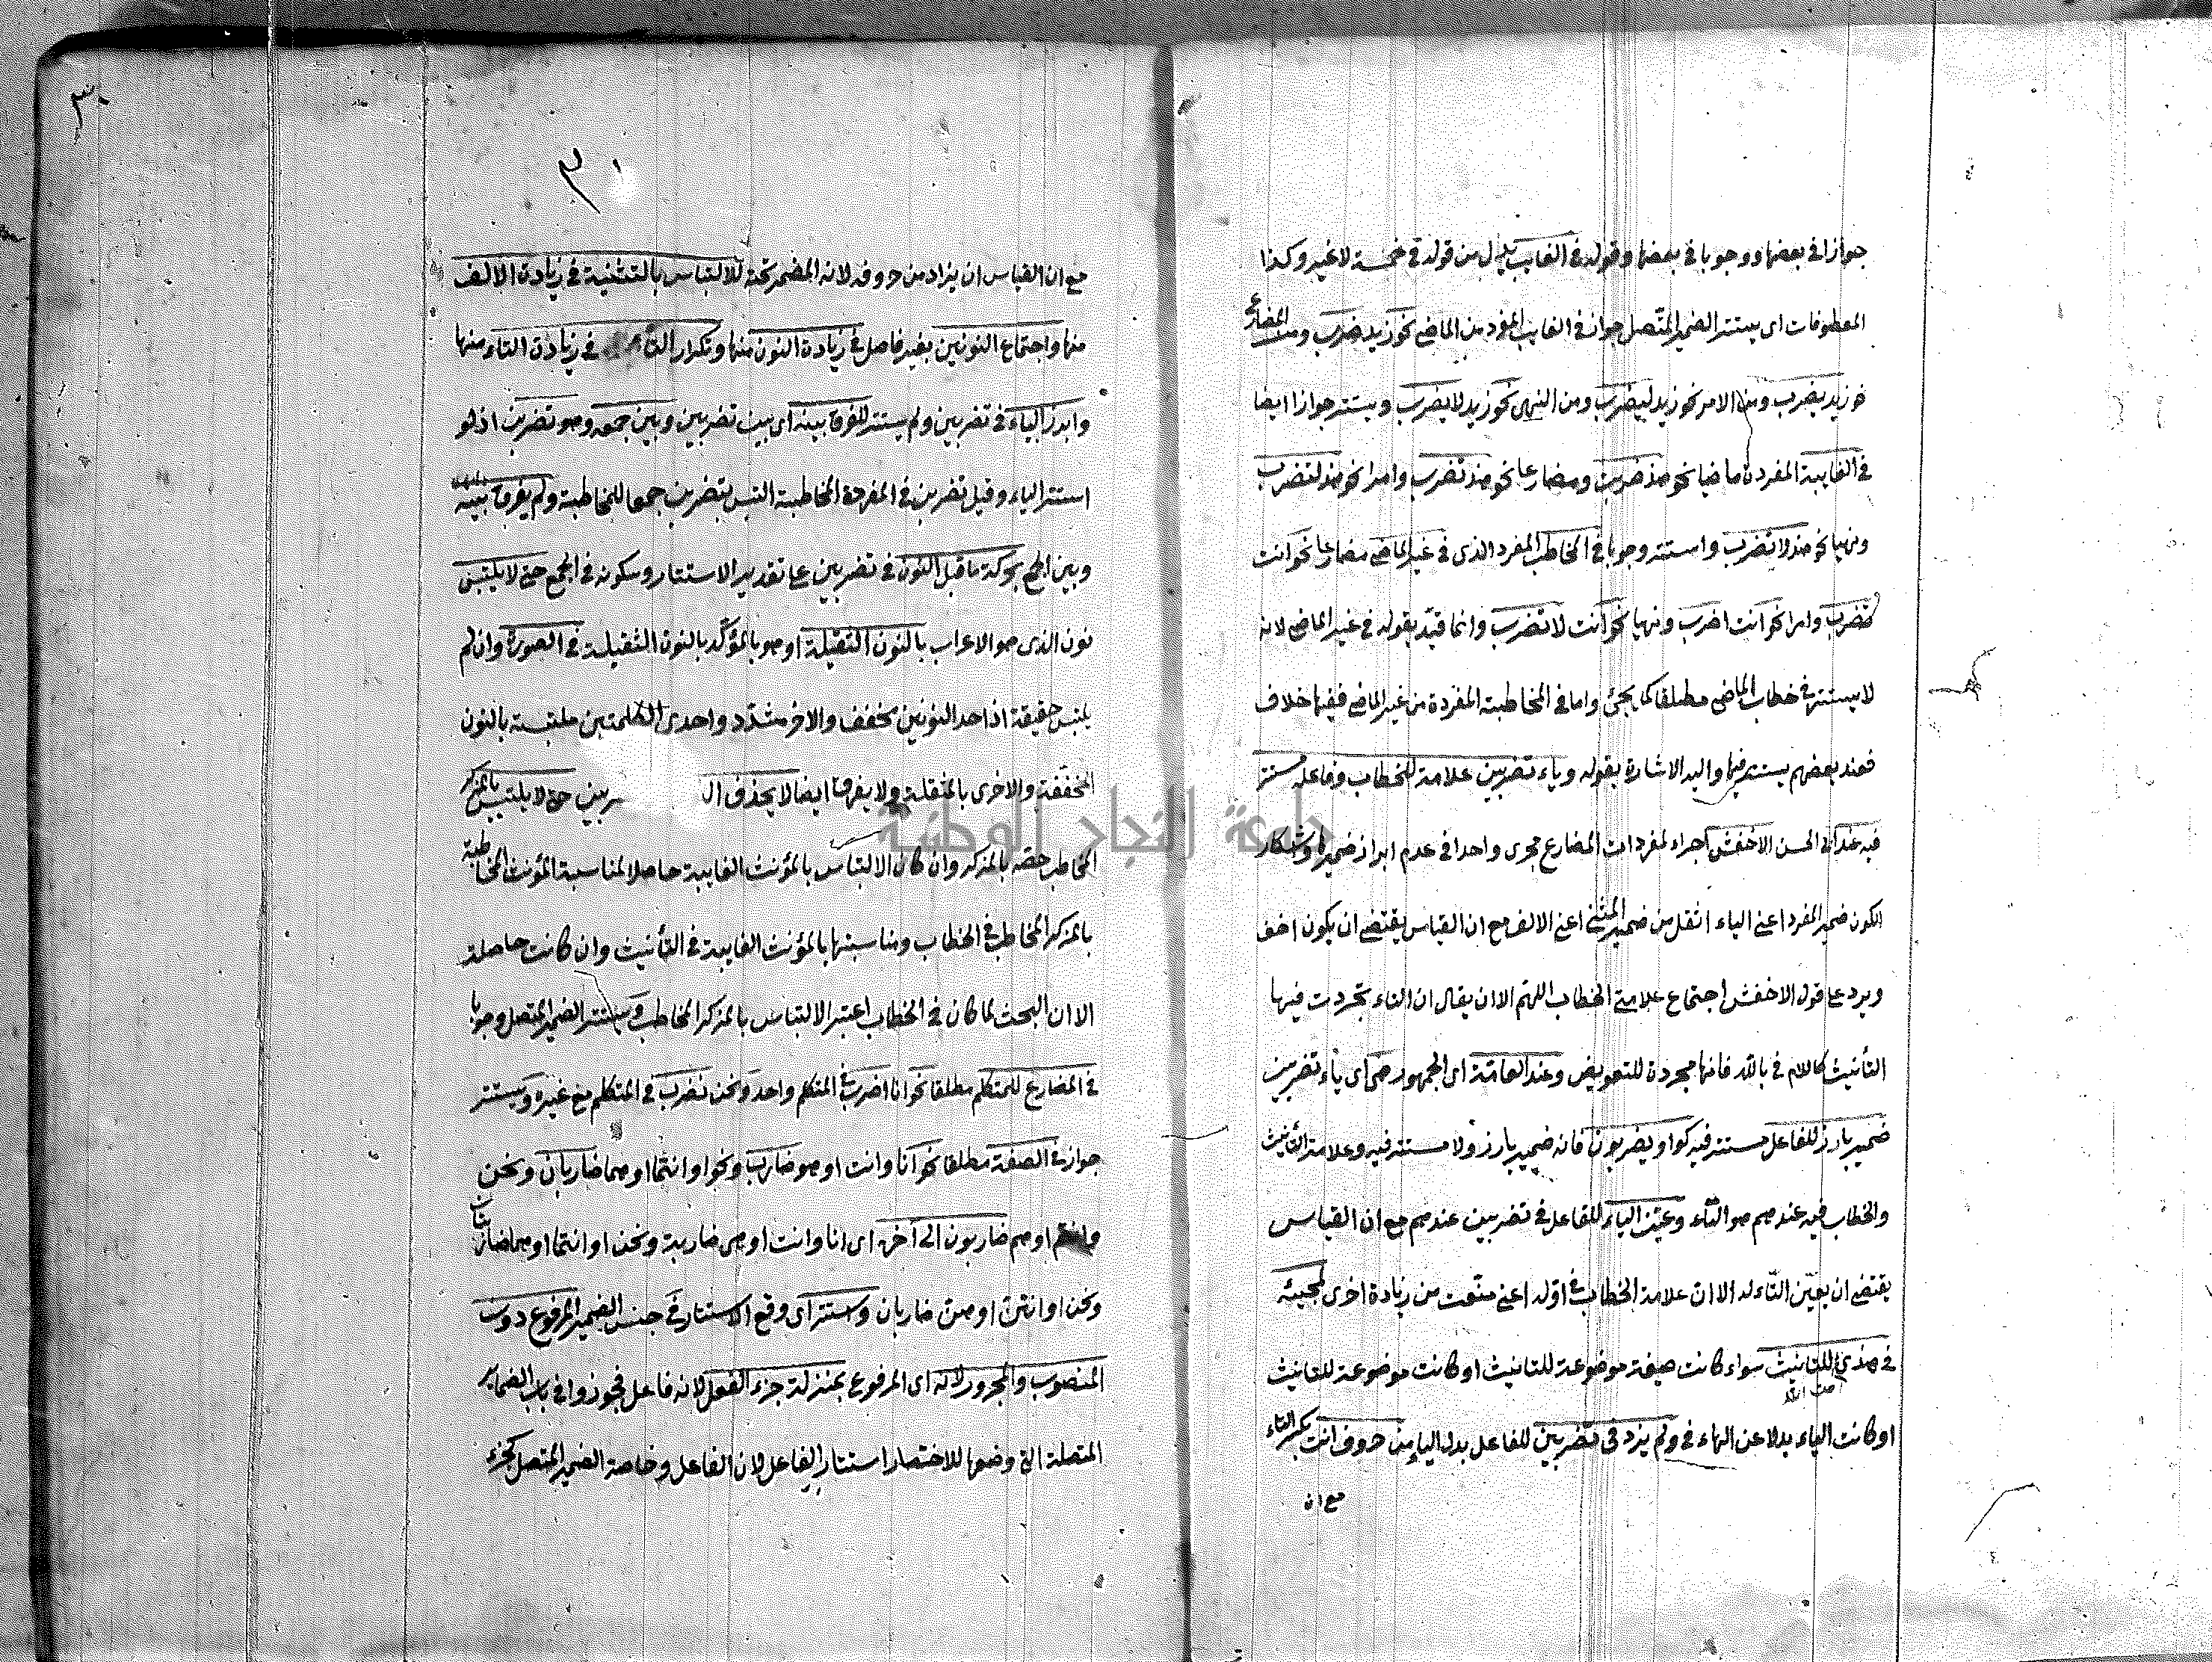 جوازا في بعضها ووجوبا في بعضها وقوله في الغايب بدل من قوله في خمسة لا غير وكذا
المعطوفات اى يستتر الضمير المتصل جواز في الغايب المفرد من الماضى نحو زيد ضرب ومن المضارع
نحو زيد يضرب ومن الامر نحو زيد ليضرب ومن النهى نحو زيد لا يضرب ويستتر جوازا ايضا
في الغايبة المفردة ماضيا نحو هند ضربت ومضارعا نحو هند تضرب وامرا نحو هند لتضرب
ونهيا نحو هند لا تضرب واستتر وجوبا في المخاطب المفرد الذى في غير الماضى مضارعا نحو انت
تضرب وامرا نحو انت اضرب ونهيا نحو انت لا تضرب وانما قيد بقوله في غير الماضى لانه
لا يستتر في خطاب الماضى مطلقا كما يجئ واما في المخاطبة المفردة من غير الماضى ففيها خلاف
فعند بعضهم يستتر فيها واليه الاشارة بقوله وياء تضربين علامة للخطاب وفاعله مستتر
فيه عند ابى الحسن الاخفش اجراء لمفردات المضارع مجرى واحدا في عدم ابراز ضميرها
لكون ضمير المفرد اعنى الياء اثقل من ضمير المثنى اعنى الالف مع ان القياس يقتضى ان يكون اخف
ويرد على قول الاخفش اجتماع علامتى الخطاب اللهم الا ان يقال ان التاء تجردت فيها
التأنيث كاللام في يا الله فانها مجردة للتعويض وعند العامة اى الجمهور هى اى ياء تضربين
ضمير بارز للفاعل مستتر فيه كواو يضربون فانه ضمير بارز ولا مستتر فيه وعلامة التأنيث
والخطاب فيه عندهم هو التاء وعين الياء للفاعل في تضربين عندهم مع ان القياس
يقتضى ان يعين التاء له الا ان علامة الخطاب في اوله اعنى منعت من زيادة اخرى لمجيئه
في هذى للتانيث سواء كانت صيغة موضوعة للتانيث او كانت موضوعة للتانيث
او كانت الياء بدلا عن الهاء في ولم يزد في تضربين للفاعل بدل الياء من حروف انت بكسر التاء
مع ان
٣٠
٣١
مع ان القياس ان يزاد من حروفه لانه المضمر تحته للالتباس بالتثنية في زيادة الالف
منها واجتماع النونين بغير فاصل في زيادة النون منها وتكرار التاء في زيادة التاء منها
وابرز الياء في تضربين ولم يستتر للفرق بينه اى بين تضربين وبين جمعه وهو تضربن اذ لو
استتر الياء وقيل تضربن في المفردة المخاطبة التبس بتضربن جمعا للمخاطبة ولم يفرق بينه
وبين الجمع بحركة ما قبل النون في تضربين على تقدير الاستتار وسكونه في الجمع حتى لا يلتبس
نون الذى هو الاعراب بالنون الثقيلة او هو بالمؤكد بالنون الثقيلة في الصورة وان لم
يلتبس حقيقة اذ احد النونين مخفف والاخر مشدد واحدى الكلمتين ملتبسة بالنون
المخففة والاخرى بالمثقلة ولا يفرق ايضا لا يحذف ال ربين حتى لا يلتبس بالمذكر
المخاطب خصه بالمذكر وان كان الالتباس بالمؤنث الغايبة حاصلا لمناسبة المؤنث المخاطبة
بالمذكر المخاطب في الخطاب ومناسبتها بالمؤنث الغايبة في التأنيث وان كانت حاصلة
الا ان البحث لما كان في الخطاب اعتبر الالتباس بالمذكر المخاطب ويستتر الضمير المتصل وجوبا
في المضارع للمتكلم مطلقا نحو انا اضرب في المتكلم واحد ونحن نضرب في المتكلم مع غيره ويستتر
جواز في الصفة مطلقا نحو انا وانت او هو ضارب ونحو او انتما او هما ضاربان ونحن
وانتم او هم ضاربون الى آخره اى انا وانت او هى ضاربة ونحن او انتما او هما ضاربتان
ونحن او انتن او هن ضاربات واستتر اى وقع الاستتار في جنس الضمير المرفوع دون
المنصوب والمجرور لانه اى المرفوع بمنزلة جزء الفعل لانه فاعل فجوزوا في باب الضماير
المتصلة التى وضعها للاختصار استتار الفاعل لان الفاعل وخاصة الضمير المتصل كجزء
جامعة النجاح الوطنية